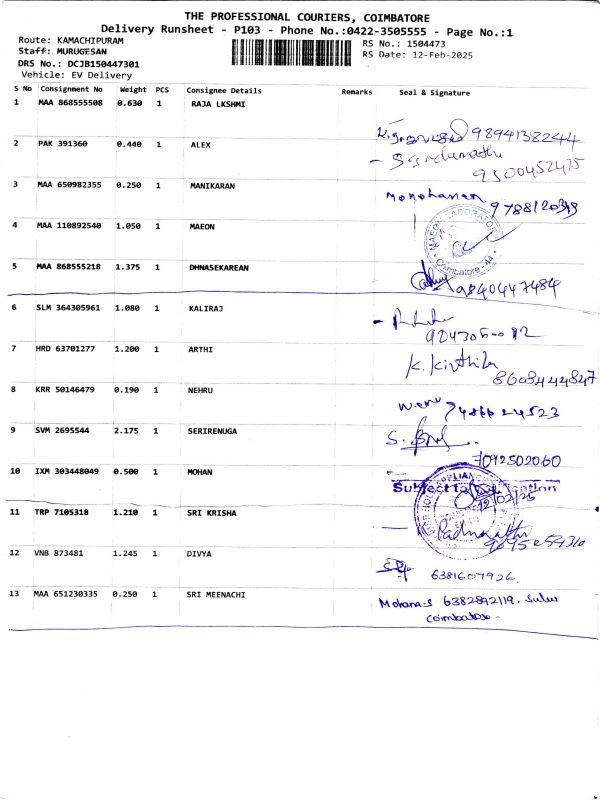 THE PROFESSIONAL COURIERS, COIMBATORE
Delivery Runsheet - P103 - Phone No.:0422-3505555 - Page No.:1
Route: KAMACHIPURAM
RS No.: 1504473
Staff: MURUGESAN
RS Date: 12-Feb-2025
DRS No.: DCJB150447301
Vehicle: EV Delivery
S No Consignment No Weight PCS Consignee Details Remarks Seal & Signature
1 MAA 868555508 0.630 1 RAJA LKSHMI
9894138244
2 PAK 391360 0.440 1 ALEX
9500452475
3 MAA 650982355 0.250 1 MANIKARAN
Manoharan
4 MAA 110892540 1.050 1 MAEON
MAEON LABORATORIES
Coimbatore
5 MAA 868555218 1.375 1 DHNASEKAREAN
9840447484
6 SLM 364305961 1.080 1 KALIRAJ
7 HRD 63701277 1.200 1 ARTHI
K. Kirthika
8 KRR 50146479 0.190 1 NEHRU
9 SVM 2695544 2.175 1 SERIRENUGA
7092502060
10 IXM 303448049 0.500 1 MOHAN
Subject to Verification
11 TRP 7105318 1.210 1 SRI KRISHA
12 VNB 873481 1.245 1 DIVYA
6381607926
13 MAA 651230335 0.250 1 SRI MEENACHI
Mohana.S 6382892119. Sulur
Coimbatore